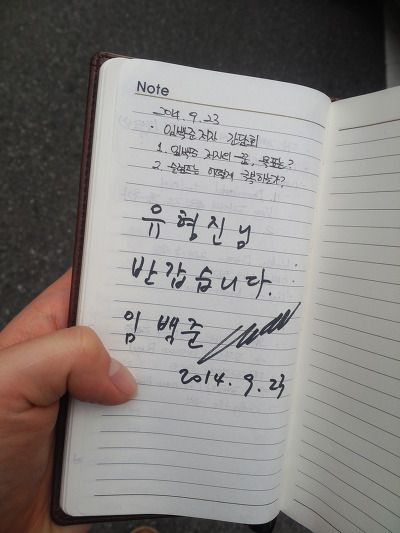 Note
2014.9.23
· 임백준 저자 간담회
1. 임백준 저자의 꿈, 목표는?
2. 슬럼프는 어떻게 극복하는가?
유형진님
반갑습니다.
임백준
2014.9.23